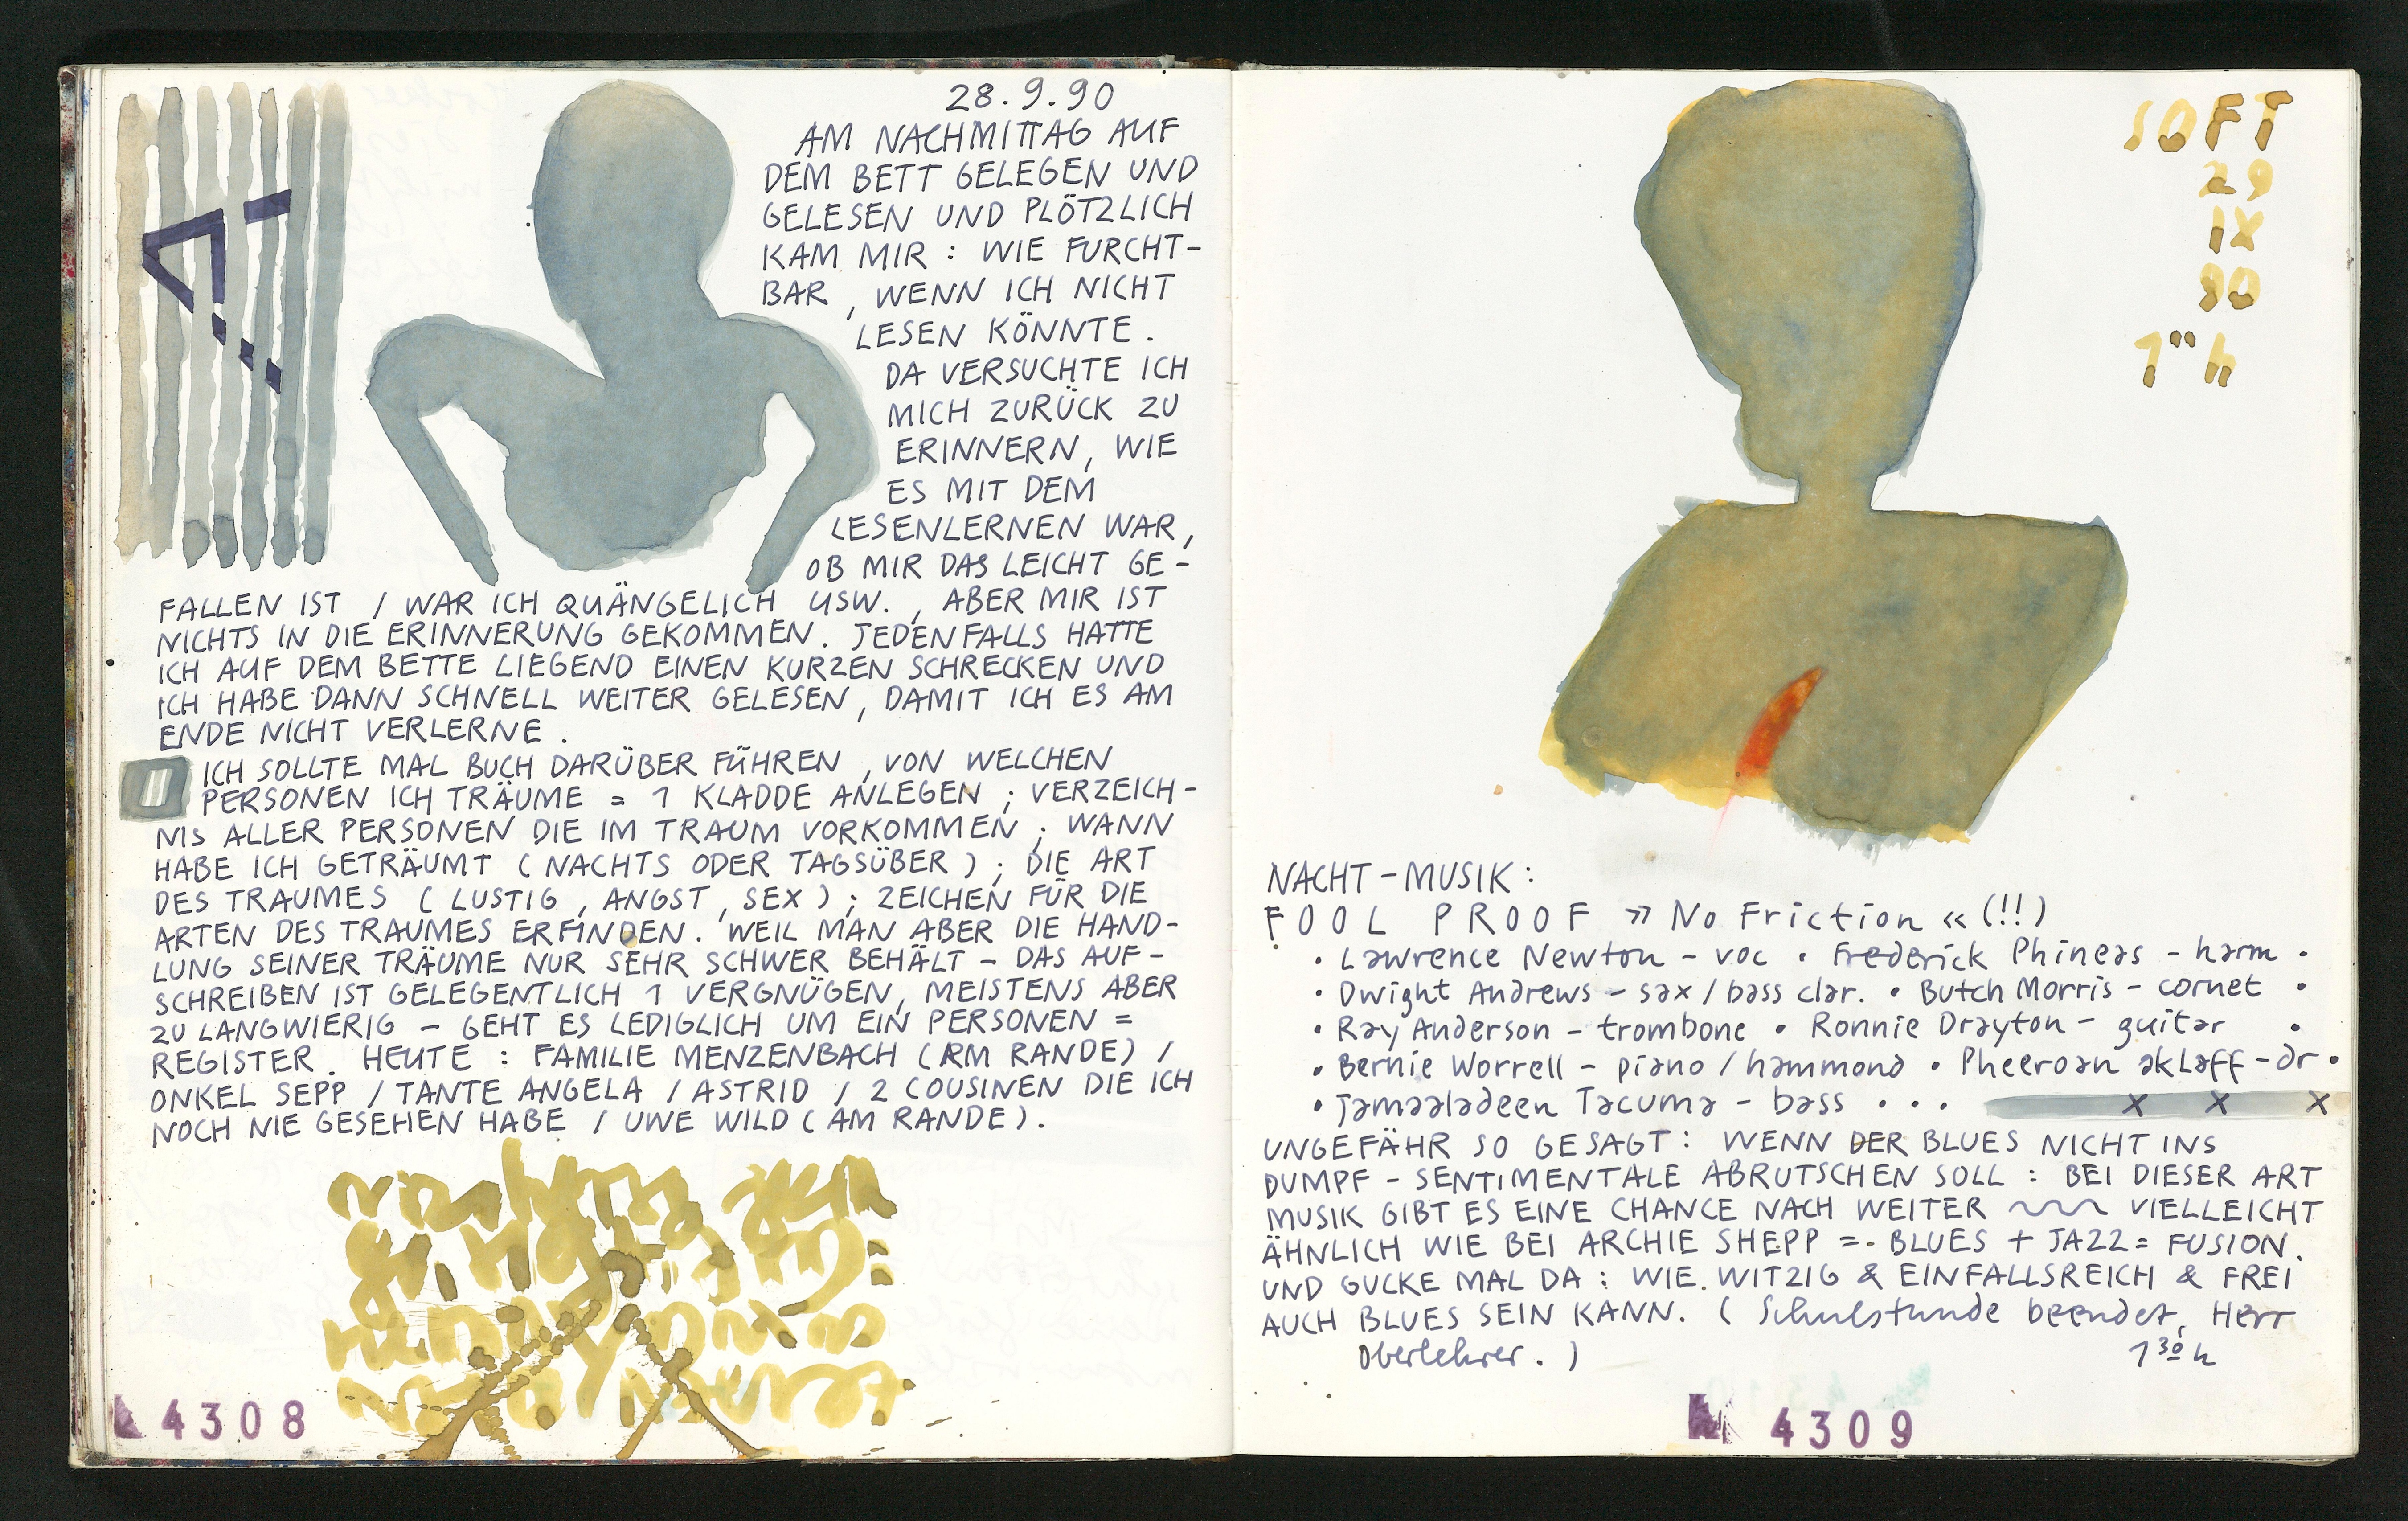 28.9.90
AM NACHMITTAG AUF
DEM BETT GELEGEN UND
GELESEN UND PLÖTZLICH
KAM MIR : WIE FURCHT-
BAR , WENN ICH NICHT
LESEN KÖNNTE .
DA VERSUCHTE ICH
MICH ZURÜCK ZU
ERINNERN , WIE
ES MIT DEM
LESENLERNEN WAR ,
OB MIR DAS LEICHT GE-
FALLEN IST / WAR ICH QUÄNGELICH USW. , ABER MIR IST
NICHTS IN DIE ERINNERUNG GEKOMMEN. JEDENFALLS HATTE
ICH AUF DEM BETTE LIEGEND EINEN KURZEN SCHRECKEN UND
ICH HABE DANN SCHNELL WEITER GELESEN , DAMIT ICH ES AM
ENDE NICHT VERLERNE .
ICH SOLLTE MAL BUCH DARÜBER FÜHREN , VON WELCHEN
PERSONEN ICH TRÄUME = 1 KLADDE ANLEGEN ; VERZEICH-
NIS ALLER PERSONEN DIE IM TRAUM VORKOMMEN ; WANN
HABE ICH GETRÄUMT ( NACHTS ODER TAGSÜBER ) ; DIE ART
DES TRAUMES ( LUSTIG , ANGST , SEX ) ; ZEICHEN FÜR DIE
ARTEN DES TRAUMES ERFINDEN. WEIL MAN ABER DIE HAND-
LUNG SEINER TRÄUME NUR SEHR SCHWER BEHÄLT – DAS AUF-
SCHREIBEN IST GELEGENTLICH 1 VERGNÜGEN, MEISTENS ABER
ZU LANGWIERIG – GEHT ES LEDIGLICH UM EIN PERSONEN =
REGISTER. HEUTE : FAMILIE MENZENBACH (AM RANDE) /
ONKEL SEPP / TANTE ANGELA / ASTRID / 2 COUSINEN DIE ICH
NOCH NIE GESEHEN HABE / UWE WILD ( AM RANDE ).
4308
SOFT
29
IX
90
1°° h
NACHT-MUSIK :
FOOL PROOF » No Friction « (!!)
• Lawrence Newton - voc • Frederick Phineas - harm •
• Dwight Andrews - sax / bass clar. • Butch Morris - cornet •
• Ray Anderson - trombone • Ronnie Drayton - guitar •
• Bernie Worrell - piano / hammond • Pheeroan akLaff - dr •
• Jamaaladeen Tacuma - bass . . . x x x
UNGEFÄHR SO GESAGT : WENN DER BLUES NICHT INS
DUMPF-SENTIMENTALE ABRUTSCHEN SOLL : BEI DIESER ART
MUSIK GIBT ES EINE CHANCE NACH WEITER VIELLEICHT
ÄHNLICH WIE BEI ARCHIE SHEPP =. BLUES + JAZZ = FUSION.
UND GUCKE MAL DA : WIE WITZIG & EINFALLSREICH & FREI
AUCH BLUES SEIN KANN. ( Schulstunde beendet, Herr
Oberlehrer. ) 1³⁰ h
4309